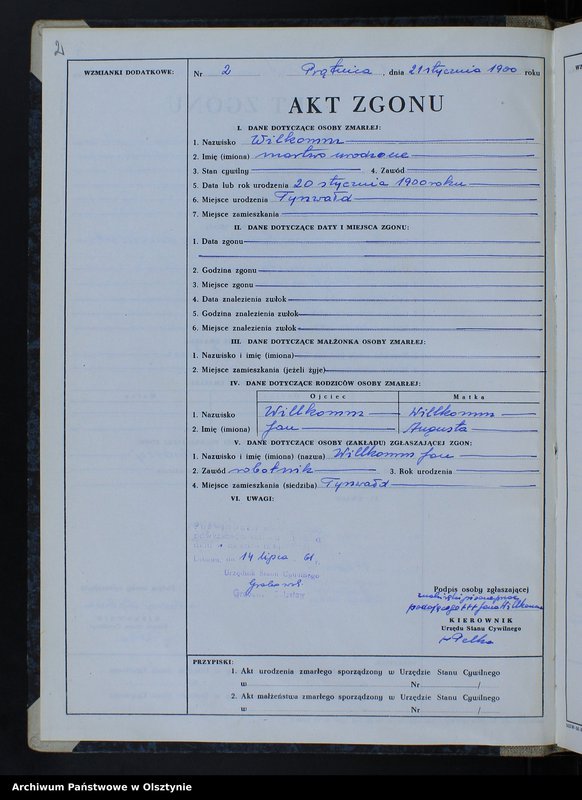 2
WZMIANKI DODATKOWE:
Nr 2 Prątnica, dnia 21 stycznia 1900 roku
AKT ZGONU
I. DANE DOTYCZĄCE OSOBY ZMARŁEJ:
1. Nazwisko Willkomm
2. Imię (imiona) martwo urodzone
3. Stan cywilny 4. Zawód
5. Data lub rok urodzenia 20 stycznia 1900 roku
6. Miejsce urodzenia Tynwałd
7. Miejsce zamieszkania
II. DANE DOTYCZĄCE DATY I MIEJSCA ZGONU:
1. Data zgonu
2. Godzina zgonu
3. Miejsce zgonu
4. Data znalezienia zwłok
5. Godzina znalezienia zwłok
6. Miejsce znalezienia zwłok
III. DANE DOTYCZĄCE MAŁŻONKA OSOBY ZMARŁEJ:
1. Nazwisko i imię (imiona)
2. Miejsce zamieszkania (jeżeli żyje)
IV. DANE DOTYCZĄCE RODZICÓW OSOBY ZMARŁEJ:
Ojciec Matka
1. Nazwisko Willkomm Willkomm
2. Imię (imiona) Jan Augusta
V. DANE DOTYCZĄCE OSOBY (ZAKŁADU) ZGŁASZAJĄCEJ ZGON:
1. Nazwisko i imię (imiona) (nazwa) Willkomm Jan
2. Zawód robotnik 3. Rok urodzenia
4. Miejsce zamieszkania (siedziba) Tynwałd
VI. UWAGI:
14 lipca 61.
Urzędnik Stanu Cywilnego
Podpis osoby zgłaszającej
znaki ręki piśmiennej
podającego +++ Jana Willkomma
KIEROWNIK
Urzędu Stanu Cywilnego
PRZYPISKI:
1. Akt urodzenia zmarłego sporządzony w Urzędzie Stanu Cywilnego
w Nr /
2. Akt małżeństwa zmarłego sporządzony w Urzędzie Stanu Cywilnego
w Nr /
Archiwum Państwowe w Olsztynie